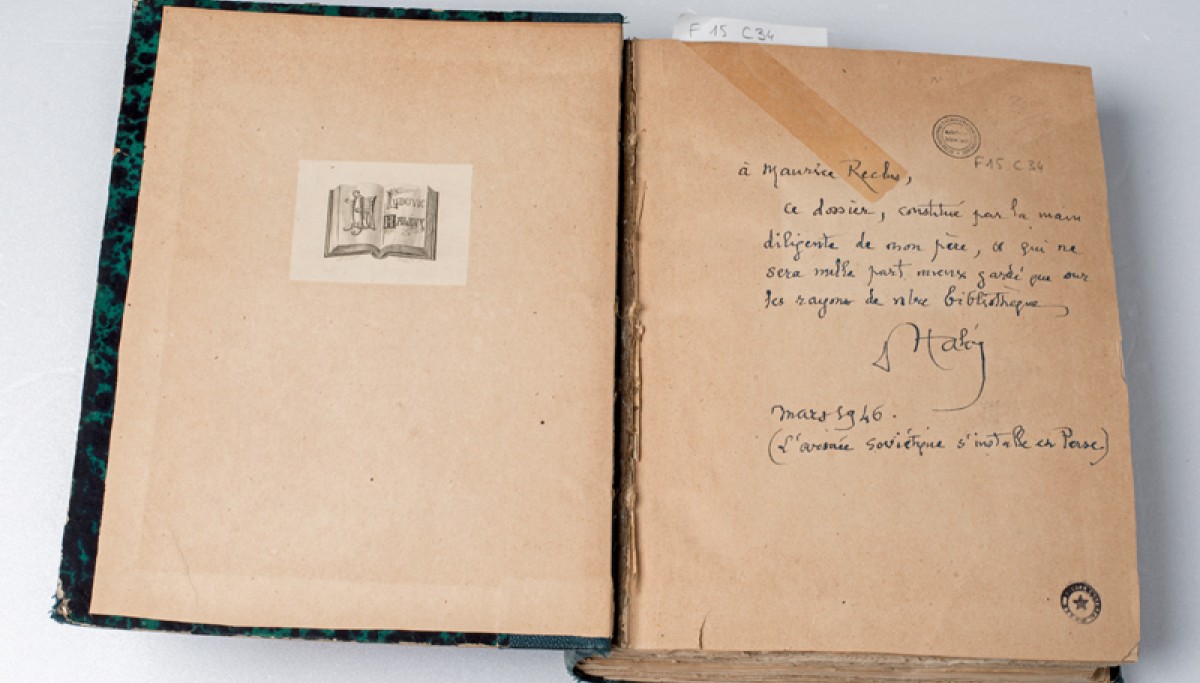 F 15 C34
LUDOVIC
HALÉVY
F 15 C 34
à Maurice Reclus,
ce dossier, constitué par la main
diligente de mon père, et qui ne
sera nulle part mieux gardé que sur
les rayons de votre bibliothèque,
Halévy
mars 1946.
(L'armée soviétique s'installe en Perse)